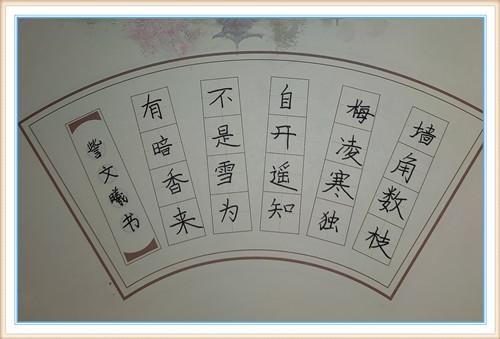 墙角数枝
梅凌寒独
自开遥知
不是雪为
有暗香来
訾文曦书